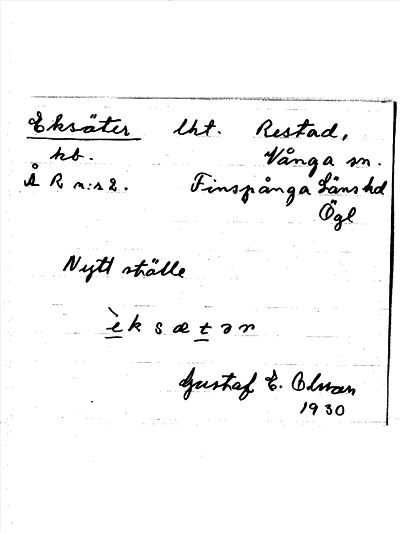 Eksäter lht. Restad,
kb. Vånga sn.
Å R n:s 2. Finspånga Läns hd
Ögl
Nytt ställe
èksætər
Gustaf E. Olsson
1930